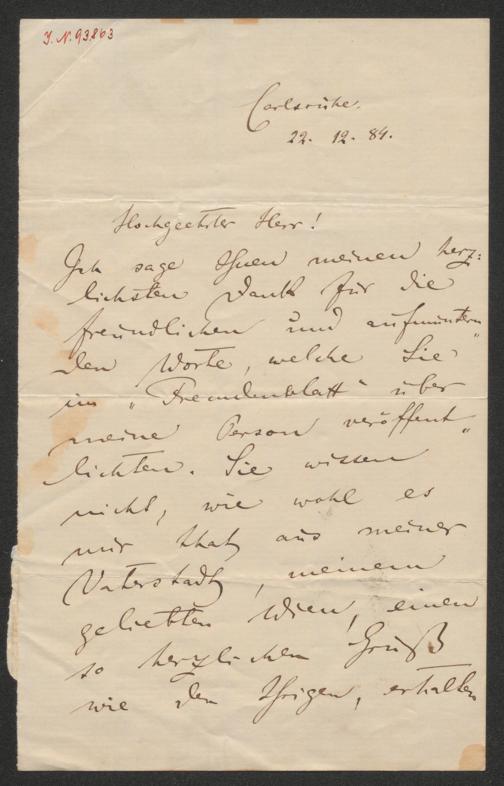 J. N. 93863
Carlsruhe.
22. 12. 84.
Hochgeehrter Herr!
Ich sage Ihnen meinen herz=
lichsten Dank für die
freundlichen und aufmuntern„
den Worte, welche Sie
im „Fremdenblatt“ über
meine Person veröffent„
lichten. Sie wissen
nicht, wie wohl es
mir that aus meiner
Vaterstadt, meinem
geliebten Wien, einen
so herzlichen Gruß
wie den Ihrigen, erhalten